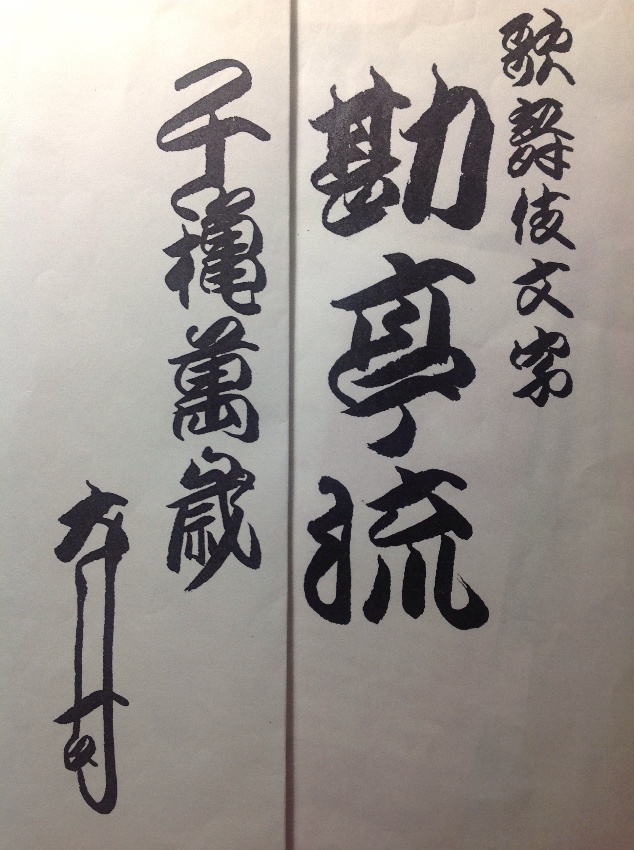 歌舞伎文字
勘亭流
千穐萬歳